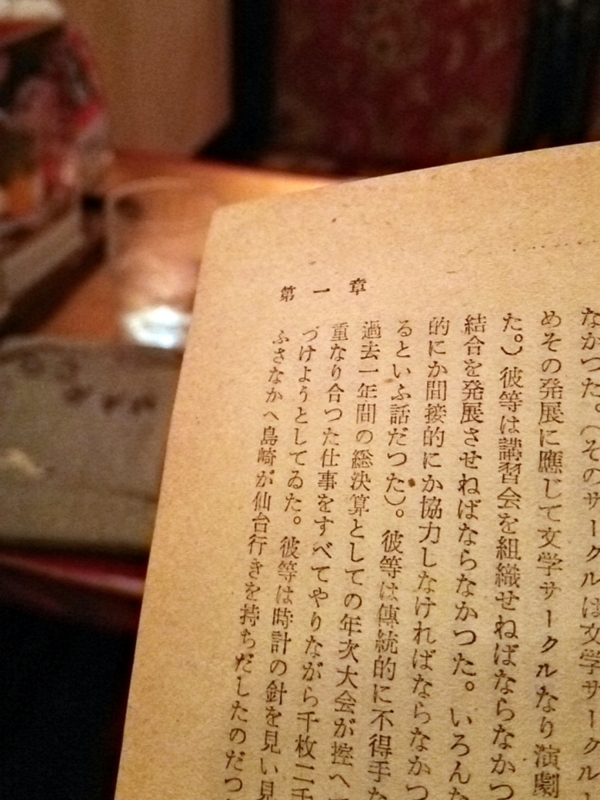 第一章
なかつた。（そのサークルは文学サークル
めその発展に應じて文学サークルなり演劇
た。）彼等は講習会を組織せねばならなかつ
結合を発展させねばならなかつた。いろんな
的にか間接的にか協力しなければならなかつ
るといふ話だつた）。彼等は傳統的に不得手な
過去一年間の総決算としての年次大会が控へ
重なり合つた仕事をすべてやりながら千枚二千
づけようとしてゐた。彼等は時計の針を見い見
ふさなかへ島崎が仙台行きを持ちだしたのだつ